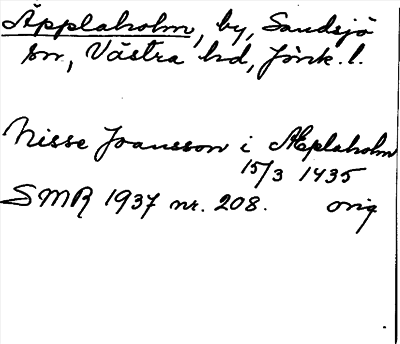 Äpplaholm, by, Sandsjö
sn, Västra hd, Jönk. l.
Nisse Joansson i Æplaholm
15/3 1435
SMR 1937 nr. 208. orig